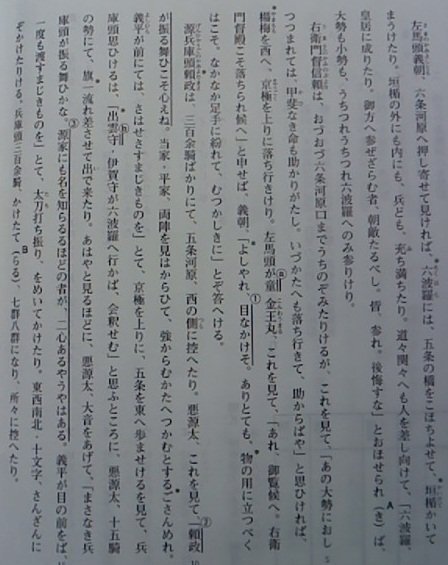 左馬頭義朝、六条河原へ押し寄せて見ければ、六波羅には、五条の橋をこぼちよせて、垣楯かいて
まうけたり。垣楯の外にも内にも、兵ども、充ち満ちたり。道々関々へも人を差し向けて、「六波羅、
皇居に成りたり。御方へ参ぜざらむ者、朝敵たるべし。皆、参れ。後悔すな」とおほせられ（き）ば、
A
大勢も小勢も、うちつれうちつれ六波羅へのみ参りけり。
右衛門督信頼は、おづおづ六条河原口までうちのぞみたりけるが、これを見て、「あの大勢におし
つつまれては、甲斐なき命も助かりがたし。いづかたへも落ち行きて、助からばや」と思ひければ、
楊梅を西へ、京極を上りに落ち行きけり。左馬頭が童 金王丸、これを見て、「あれ、御覧候へ。右衛
門督殿こそ落ちられ候へ」と申せば、義朝、「よしやれ、目なかけそ。ありとても、物の用に立つべく
①
はこそ。なかなか足手に紛れて、むつかしきに」とぞ答へける。
源兵庫頭頼政は、三百余騎ばかりにて、五条河原、西の側に控へたり。悪源太、これを見て「頼政
②
が振る舞ひこそ心えね。当家・平家、両陣を見はからひて、強からむかたへつかむとするごさんめれ。
義平が前にては、さはせさすまじきものを」とて、京極を上りに、五条を東へ歩ませけるを見て、兵
庫頭思ひけるは、「出雲守 伊賀守が六波羅へ行かば、会釈せむ」と思ふところに、悪源太、十五騎
の勢にて、旗一流れ差させて出で来たり。あはやと見るほどに、悪源太、大音をあげて、「まさなき兵
③
庫頭が振る舞ひかな。源家にも名を知らるるほどの者が、二心あるやうやはある。義平が目の前をば、
一度も渡すまじきものを」とて、太刀打ち振り、をめいてかけたり。東西南北・十文字、さんざんに
ぞかけたりける。兵庫頭三百余騎、かけたて（らる）、七群八群になり、所々に控へたり。
B